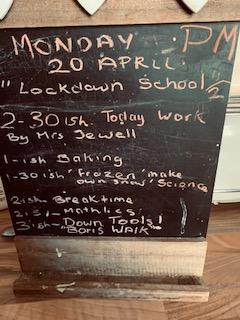 MONDAY PM
20 APRIL
"Lockdown School"
2-30ish Today Work
By Mrs Jewell
1-ish Baking
1-30ish 'Frozen' make
own snow' Science
2ish Breaktime
Mathlics
3ish - Down Tools!
"Boris Walk"